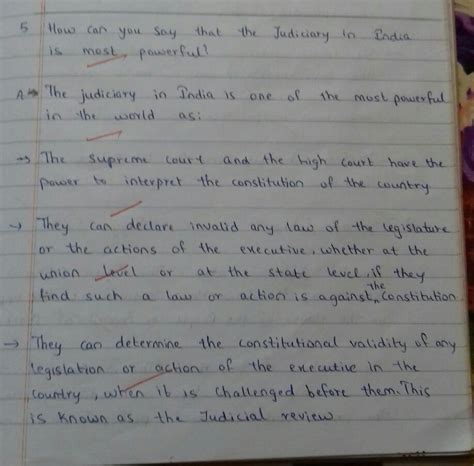 5 How can you say that the Judiciary in India
is most powerful?
A→ The judiciary in India is one of the most powerful
in the world as:
→ The supreme court and the high court have the
power to interpret the constitution of the country
→ They can declare invalid any law of the legislature
or the actions of the executive, whether at the
union level or at the state level, if they
find such a law or action is against the constitution
→ They can determine the constitutional validity of any
legislation or action of the executive in the
country, when it is challenged before them. This
is known as the Judicial review.